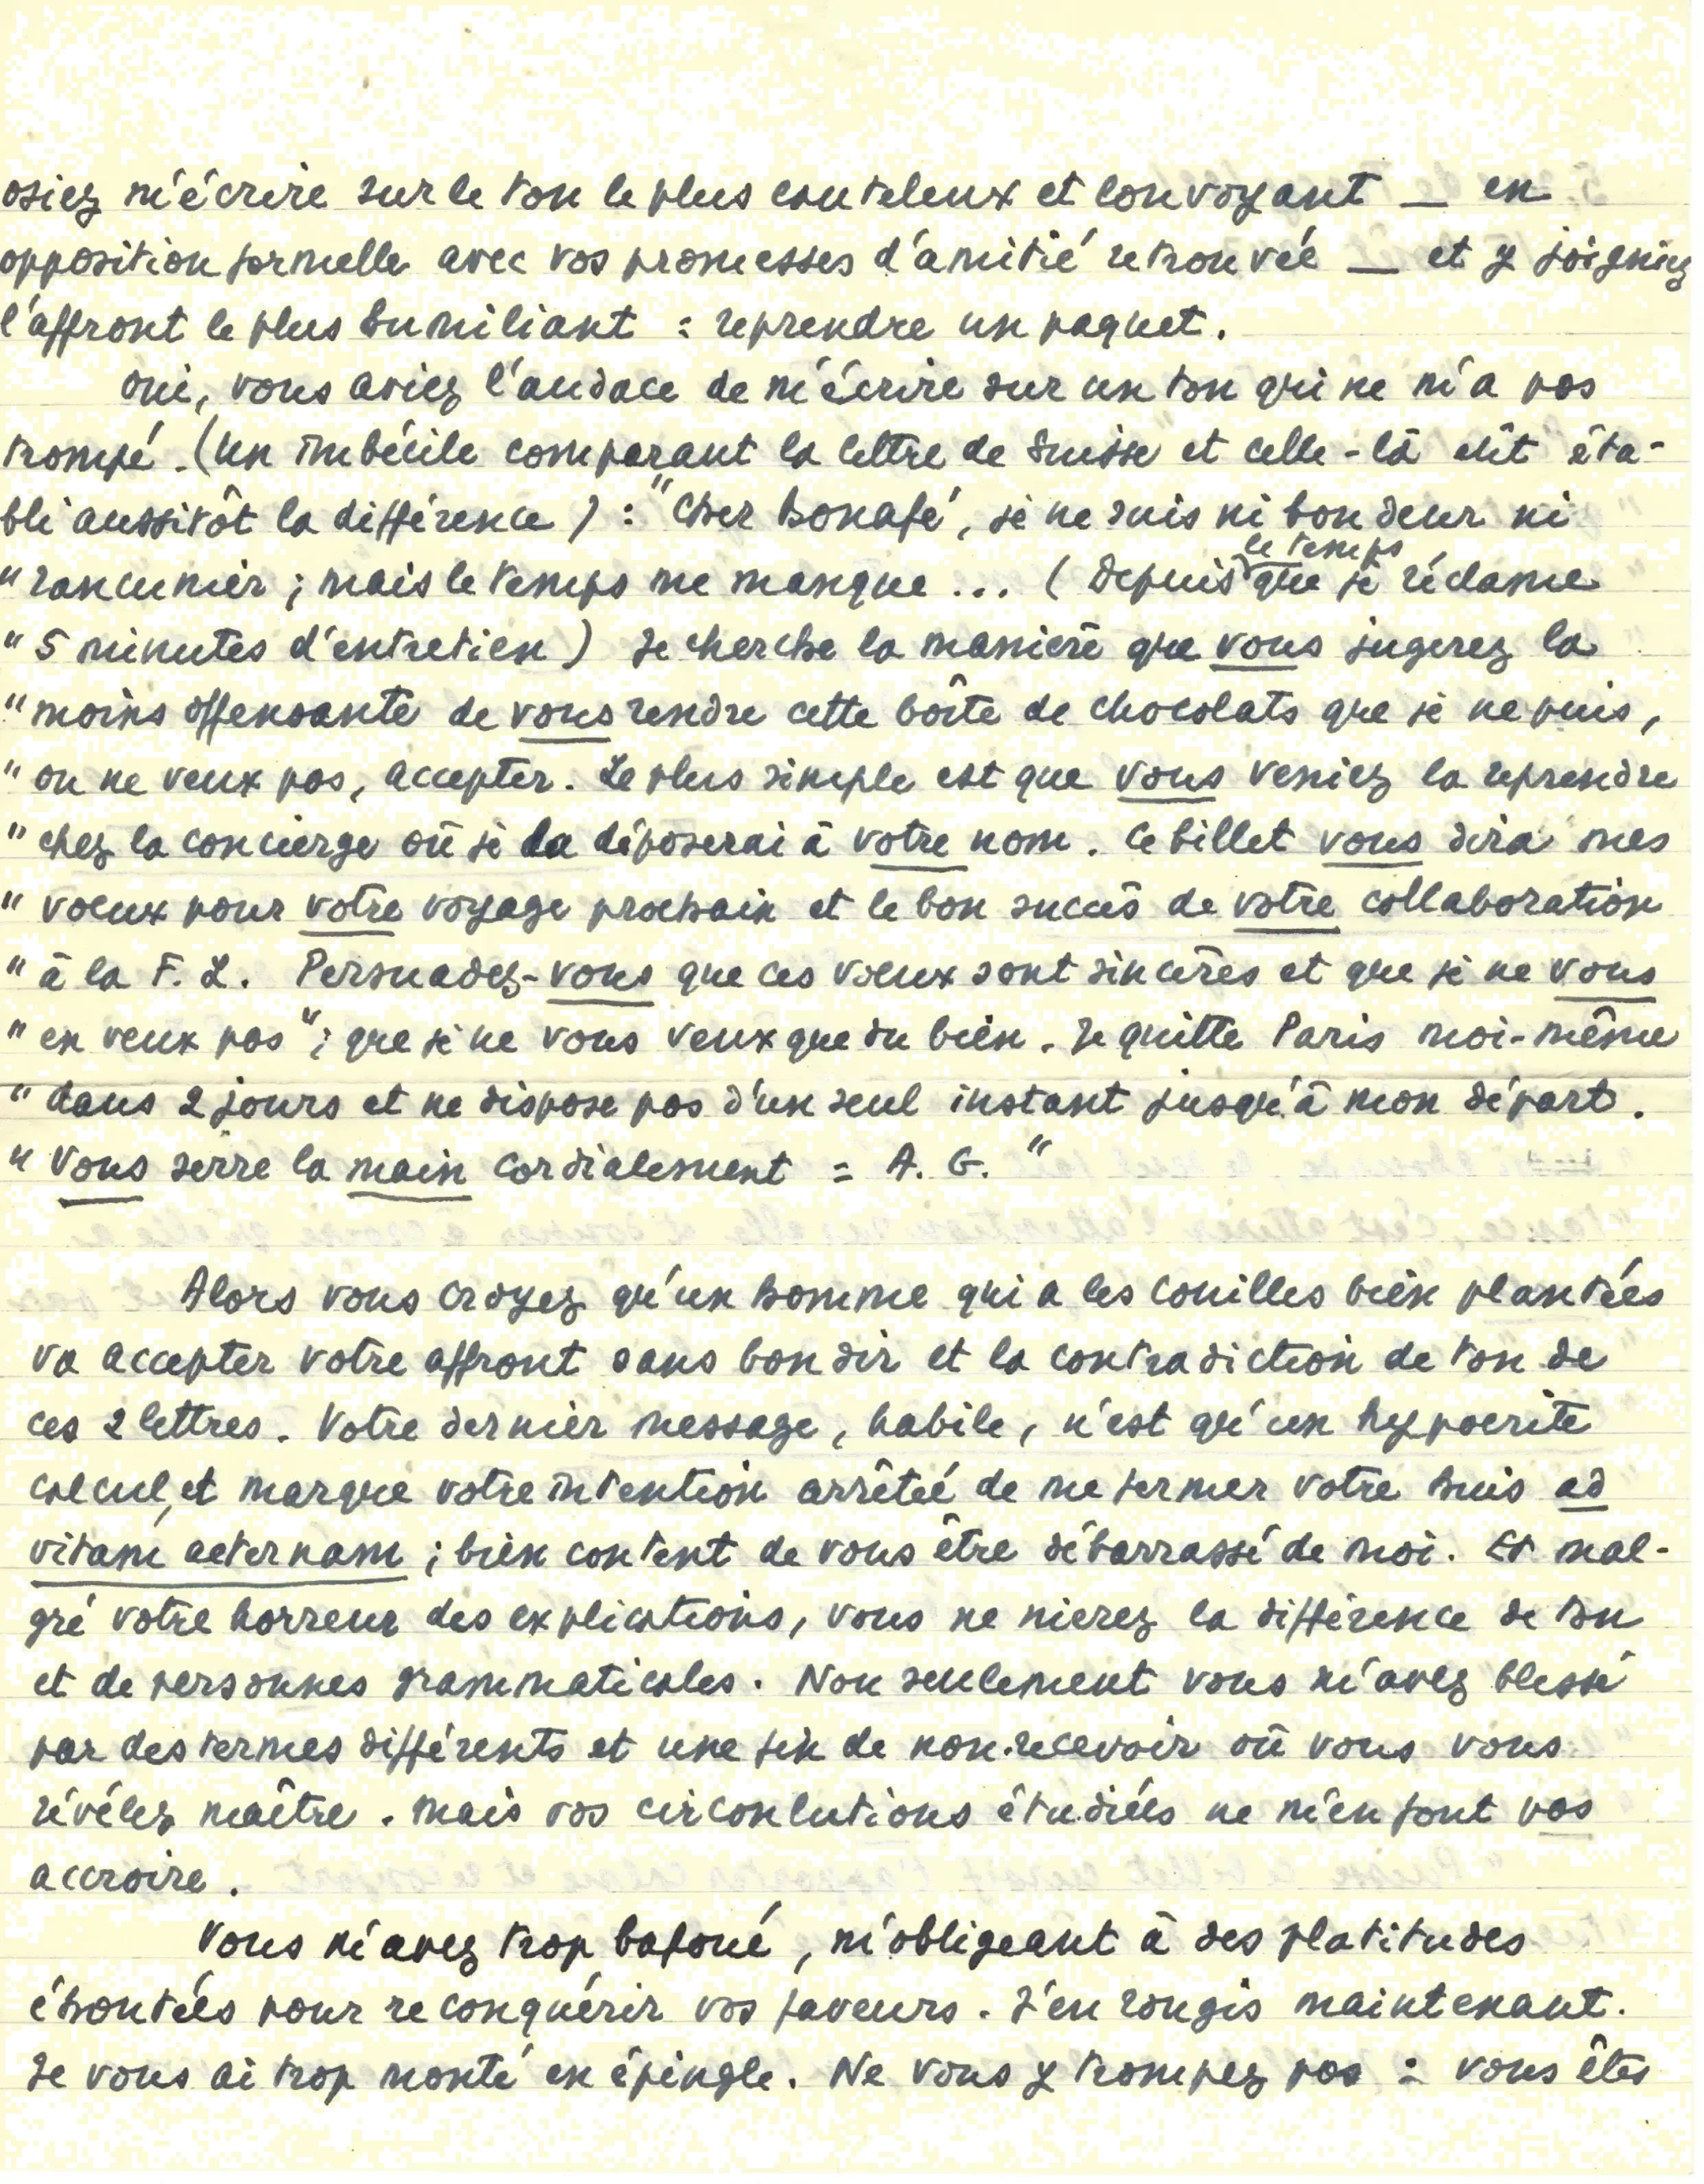 osiez m'écrire sur le ton le plus cauteleux et louvoyant — en
opposition formelle avec vos promesses d'amitié retrouvée — et y joigniez
l'affront le plus humiliant : reprendre un paquet.
Oui, vous aviez l'audace de m'écrire sur un ton qui ne m'a pas
trompé. (Un imbécile comparant la lettre de Suisse et celle-là eût éta-
bli aussitôt la différence) : "Cher Bonafé, je ne suis ni boudeur ni
" rancunier ; mais le temps me manque ... (Depuis le temps que je réclame
" 5 minutes d'entretien) Je cherche la manière que vous jugerez la
" moins offensante de vous rendre cette boîte de chocolats que je ne puis,
" ou ne veux pas, accepter. Le plus simple est que vous veniez la reprendre
" chez la concierge où je la déposerai à votre nom. Ce billet vous dira mes
" voeux pour votre voyage prochain et le bon succès de votre collaboration
" à la F. L. Persuadez-vous que ces voeux sont sincères et que je ne vous
" en veux pas" ; que je ne vous veux que du bien. Je quitte Paris moi-même
" dans 2 jours et ne dispose pas d'un seul instant jusqu'à mon départ.
" Vous serre la main cordialement = A. G. "
Alors vous croyez qu'un homme qui a les couilles bien plantées
va accepter votre affront sans bondir et la contradiction de ton de
ces 2 lettres. Votre dernier message, habile, n'est qu'un hypocrite
calcul, et marque votre intention arrêtée de me fermer votre huis ad
vitam aeternam ; bien content de vous être débarrassé de moi. Et mal-
gré votre horreur des explications, vous ne nierez la différence de ton
et de personnes grammaticales. Non seulement vous m'avez blessé
par des termes différents et une fin de non-recevoir où vous vous
révélez maître. Mais vos circonlutions étudiées ne m'en font pas
accroire.
Vous m'avez trop bafoué, m'obligeant à des platitudes
éhontées pour reconquérir vos faveurs. J'en rougis maintenant.
Je vous ai trop monté en épingle. Ne vous y trompez pas : vous êtes